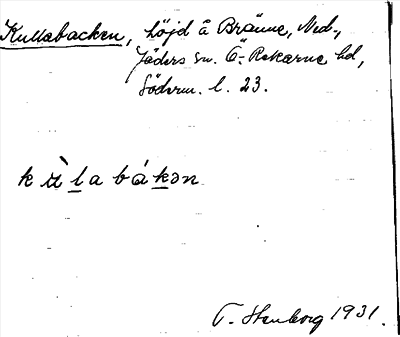 Kullabacken, höjd å Bränne, Ned.,
Jäders sn. Ö-Rekarne hd,
Söderm. l. 23.
kùlabákən
T. Stenborg 1931.